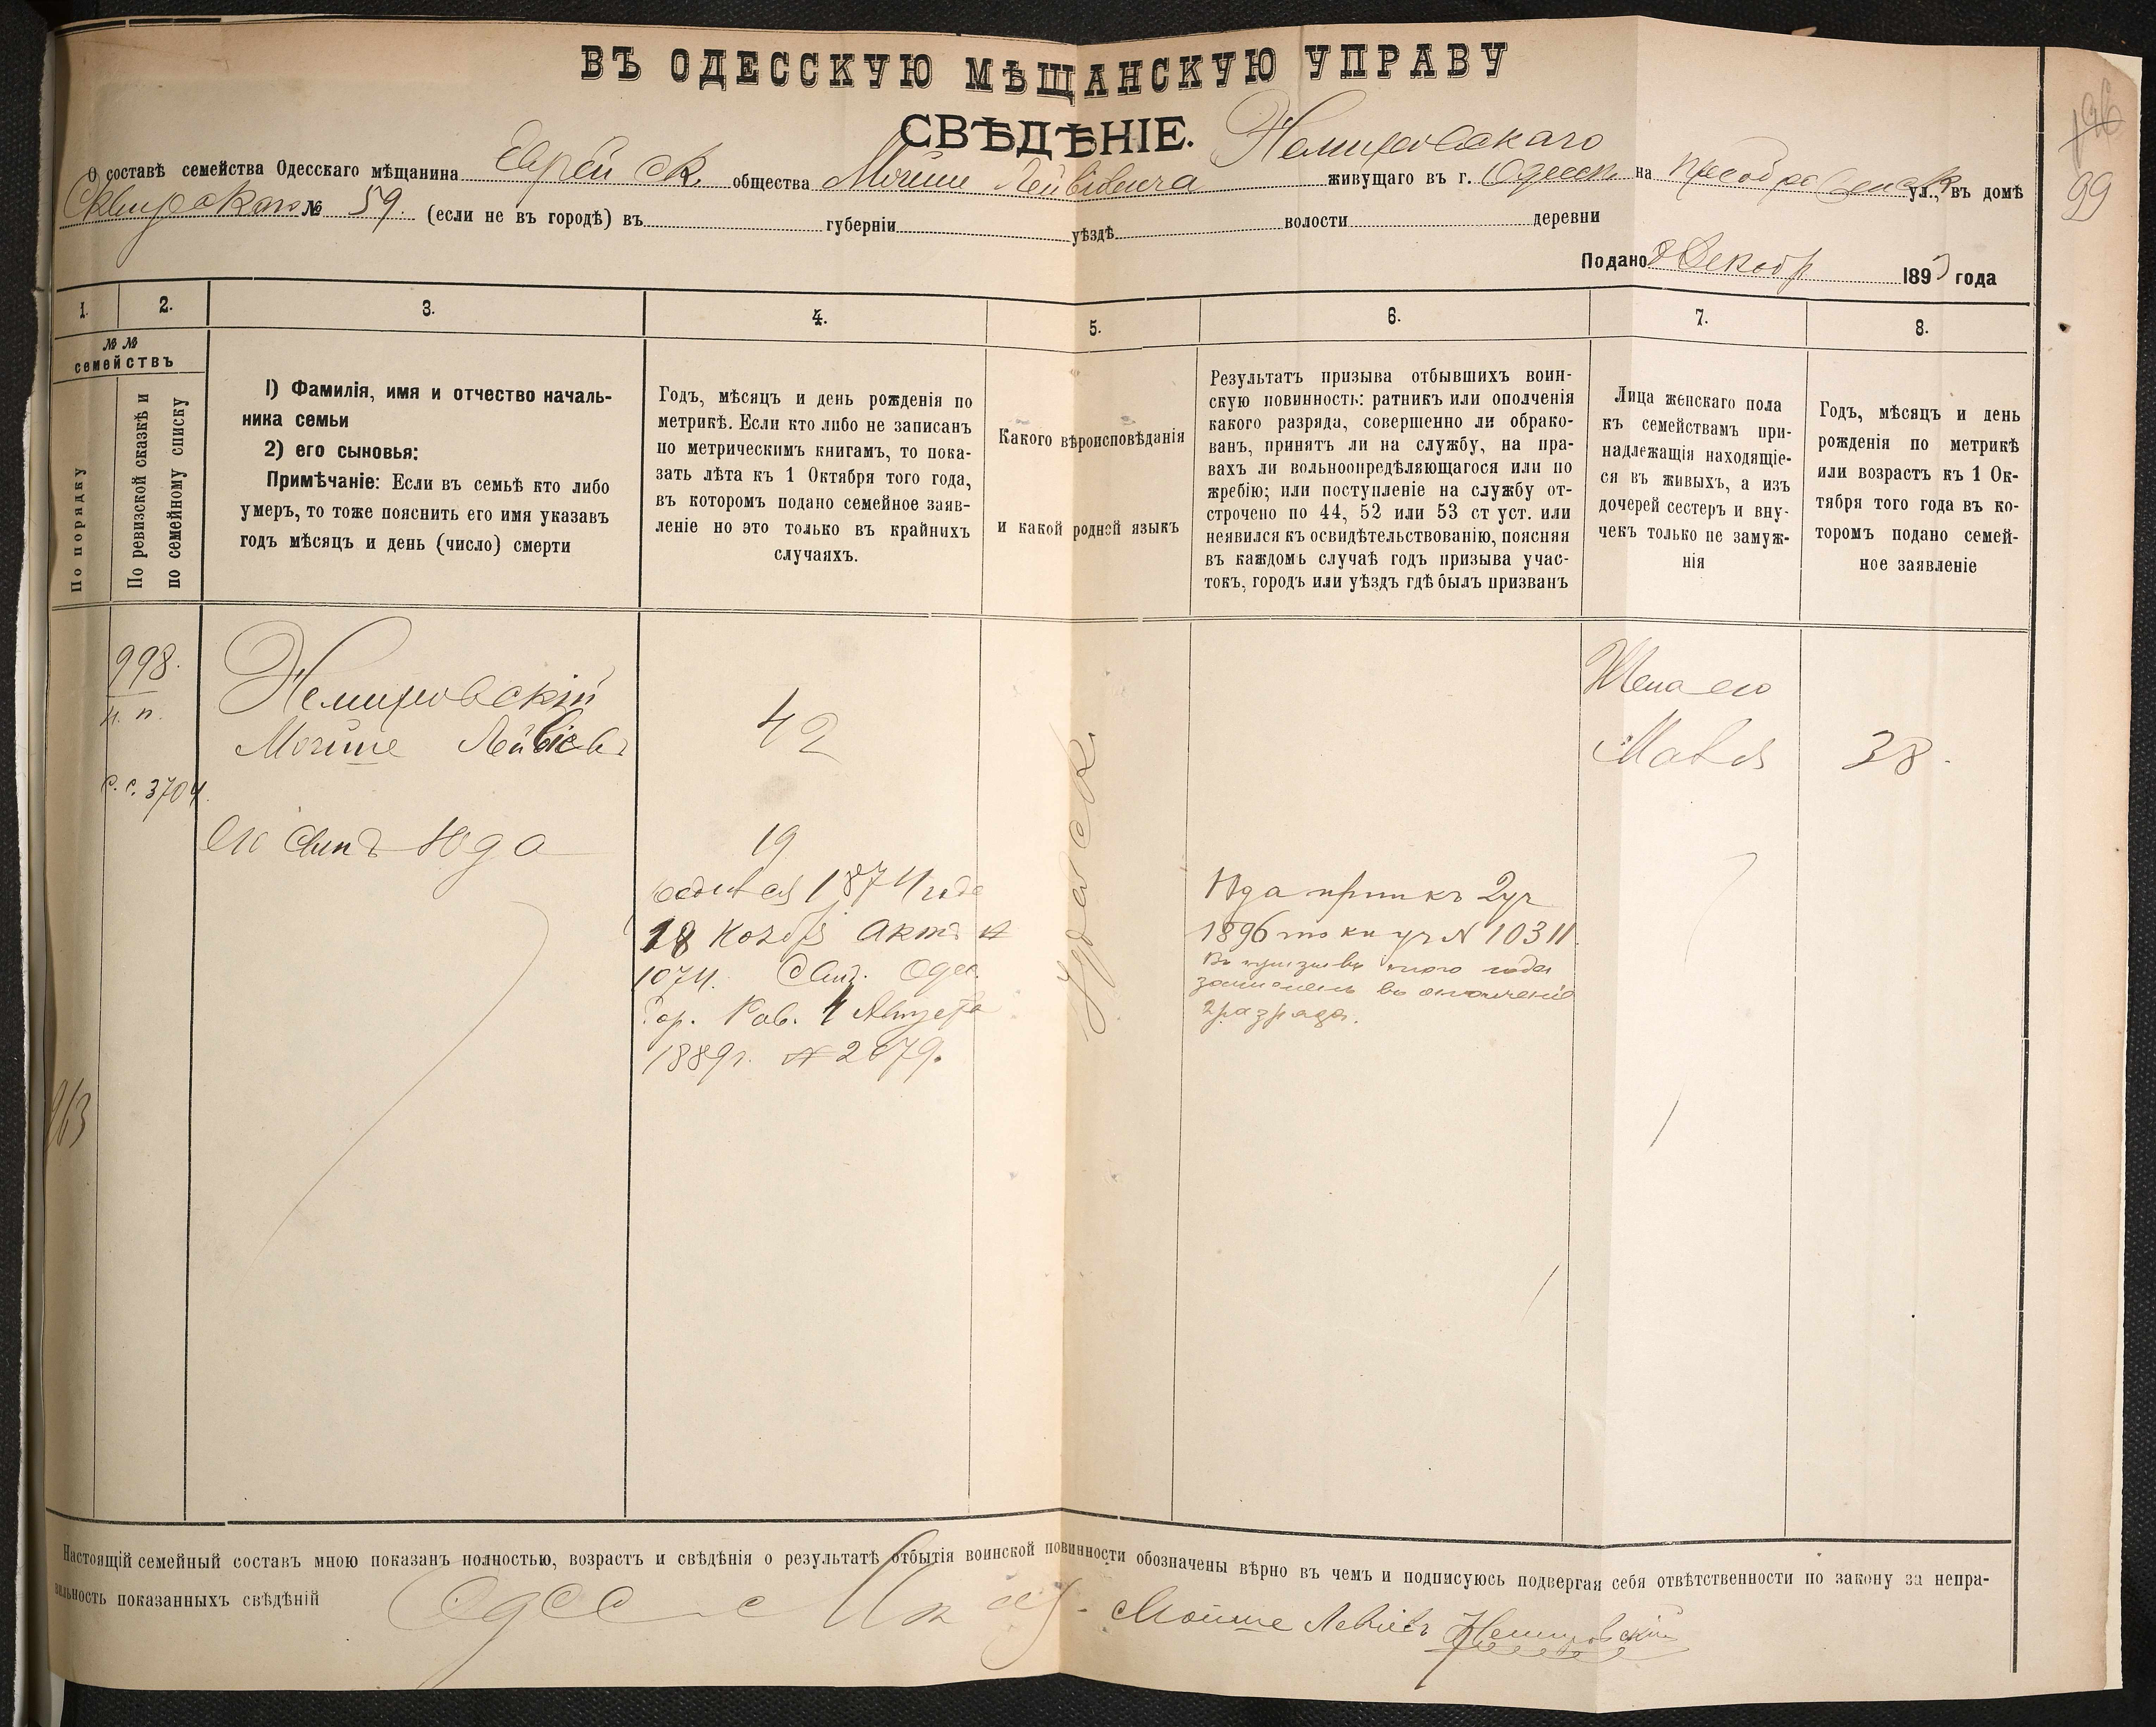 ВЪ ОДЕССКУЮ МѢЩАНСКУЮ УПРАВУ
СВѢДѢНІЕ.
Немировскаго
О составѣ семейства Одесскаго мѣщанина Еврейск. общества Мойше Лейвіевича живущаго въ г. Одессѣ на Преображенск ул., въ домѣ
Сквирскаго № 59. (если не въ городѣ) въ губерніи уѣздѣ волости деревни
Подано 8 Декабр 1893 года
99
1. 2. 3. 4. 5. 6. 7. 8.
№ №
семействъ
По порядку
По ревизской сказкѣ и
по семейному списку
I) Фамилія, имя и отчество началь-
ника семьи
2) его сыновья:
Примѣчаніе: Если въ семьѣ кто либо
умеръ, то тоже пояснить его имя указавъ
годъ мѣсяцъ и день (число) смерти
Годъ, мѣсяцъ и день рожденія по
метрикѣ. Если кто либо не записанъ
по метрическимъ книгамъ, то пока-
зать лѣта къ 1 Октября того года,
въ которомъ подано семейное заяв-
леніе но это только въ крайнихъ
случаяхъ.
Какого вѣроисповѣданія
и какой родной языкъ
Результатъ призыва отбывшихъ воин-
скую повинность: ратникъ или ополченія
какого разряда, совершенно ли обрако-
ванъ, принятъ ли на службу, на пра-
вахъ ли вольноопредѣляющагося или по
жребію; или поступленіе на службу от-
строчено по 44, 52 или 53 ст уст. или
неявился къ освидѣтельствованію, поясняя
въ каждомъ случаѣ годъ призыва учас-
токъ, городъ или уѣздъ гдѣ былъ призванъ
Лица женскаго пола
къ семействамъ при-
надлежащія находящіе-
ся въ живыхъ, а изъ
дочерей сестеръ и вну-
чекъ только не замуж-
нія
Годъ, мѣсяцъ и день
рожденія по метрикѣ
или возрастъ къ 1 Ок-
тября того года въ ко-
торомъ подано семей-
ное заявленіе
998.
н. п.
с. с. 3704
Немировскій
Мойше Лейвіевъ
42
Жена его
38.
его сынъ Юда
19
родился 1874 года
18 Ноября актъ №
1074. Свид. Одес.
Гор. Рав. 1 Августа
1889г. № 2679.
Іудейск.
Юда прип къ 2 уч
1896 № 10311.
Въ призывѣ того года
зачисленъ въ ополченіе
2 разряда.
963
Настоящій семейный составъ мною показанъ полностью, возрастъ и свѣдѣнія о результатѣ отбытія воинской повинности обозначены вѣрно въ чемъ и подписуюсь подвергая себя отвѣтственности по закону за непра-
вильность показанныхъ свѣдѣній
Мойше Левіевъ Немировскій